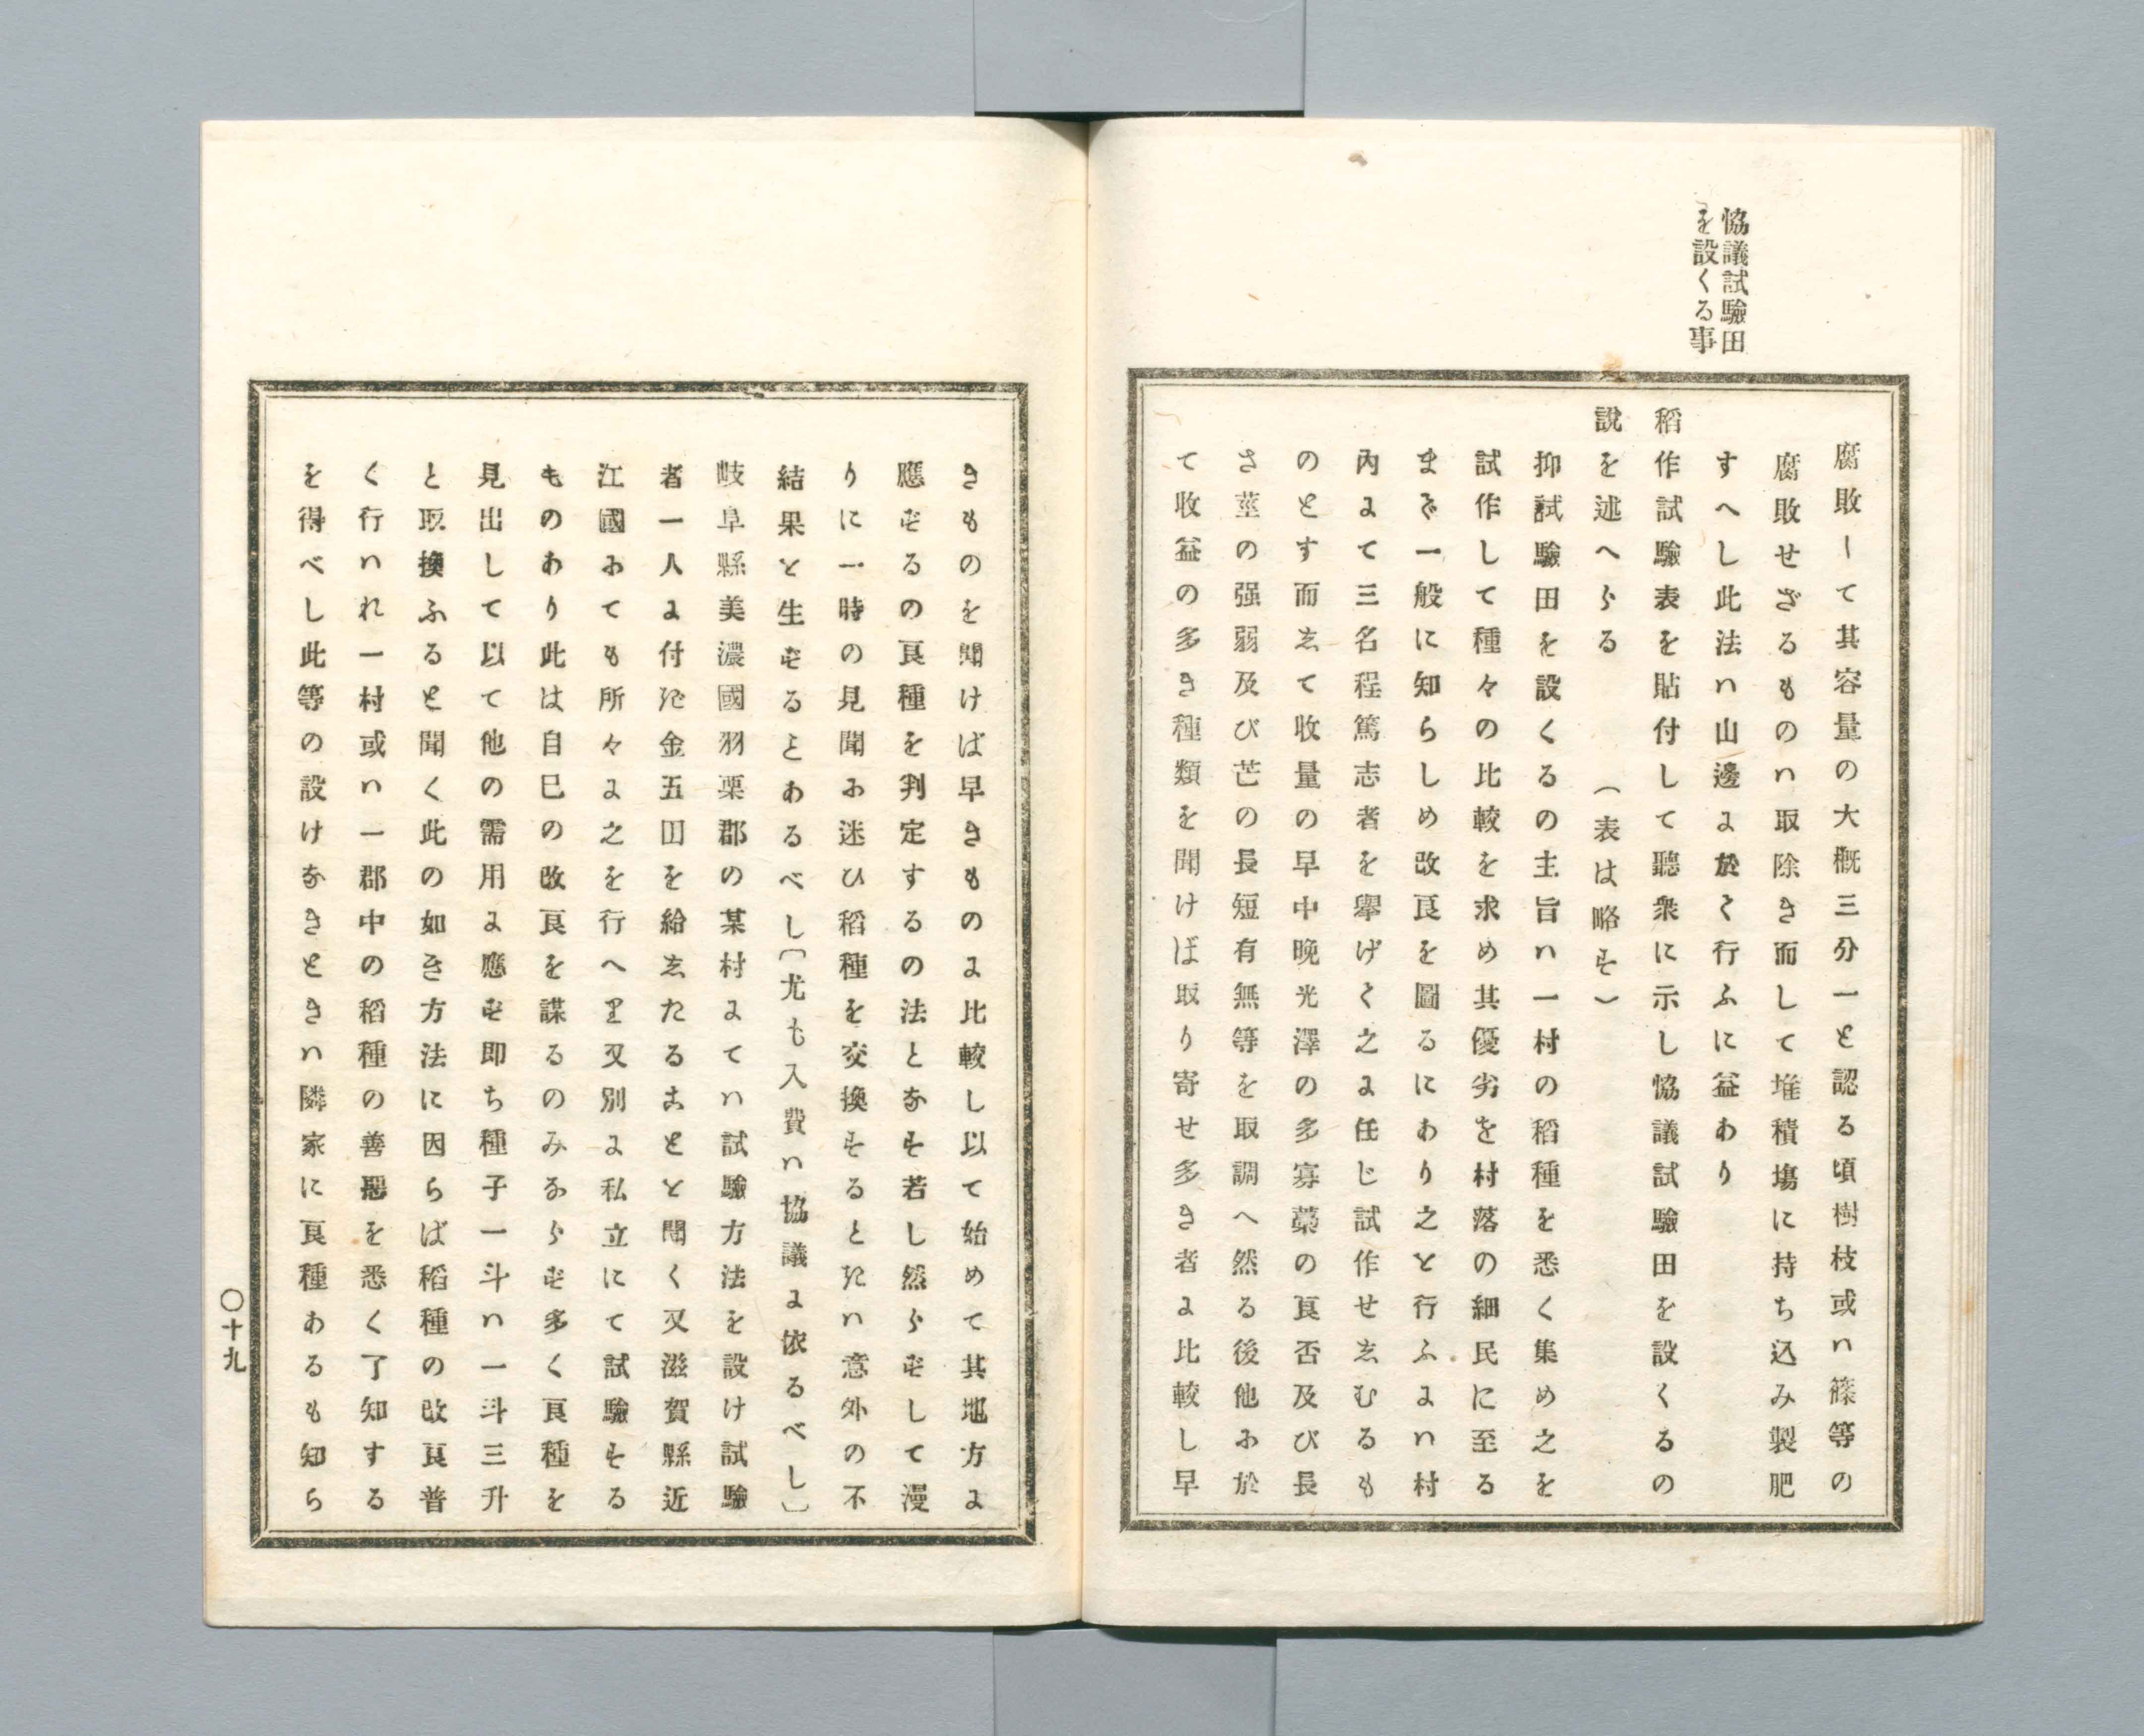 協議試驗田
を設くる事
腐敗して其容量の大概三分一と認る頃樹枝或ハ篠等の
腐敗せざるものハ取除き而して堆積塲に持ち込み製肥
すへし此法ハ山邊よ於て行ふに益あり
稻作試驗表を貼付して聽衆に示し恊議試驗田を設くるの
說を述へらる　（表は略す）
抑試驗田を設くるの主旨ハ一村の稻種を悉く集め之を
試作して種々の比較を求め其優劣を村落の細民に至る
まで一般に知らしめ改良を圖るにあり之を行ふよハ村
內よて三名程篤志者を擧げて之よ任じ試作せしむるも
のとす而して收量の早中晚光澤の多寡藁の良否及び長
さ莖の强弱及び芒の長短有無等を取調へ然る後他に於
て收益の多き種類を聞けば取り寄せ多き者よ比較し早
きものを聞けば早きものよ比較し以て始めて其地方よ
應ずるの良種を判定するの法となす若し然らずして漫
りに一時の見聞に迷ひ稻種を交換するときハ意外の不
結果を生ずることあるべし〔尤も入費ハ協議よ依るべし〕
岐阜縣美濃國羽栗郡の某村よてハ試驗方法を設け試驗
者一人よ付き金五圓を給したることを聞く又滋賀縣近
江國にても所々よ之を行へり又別よ私立にて試驗する
ものあり此は自己の改良を謀るのみならず多く良種を
見出して以て他の需用よ應ず卽ち種子一斗ハ一斗三升
と取換ふると聞く此の如き方法に因らば稻種の改良普
く行ハれ一村或ハ一郡中の稻種の善惡を悉く了知する
を得べし此等の設けなきときハ隣家に良種あるも知ら
〇十九